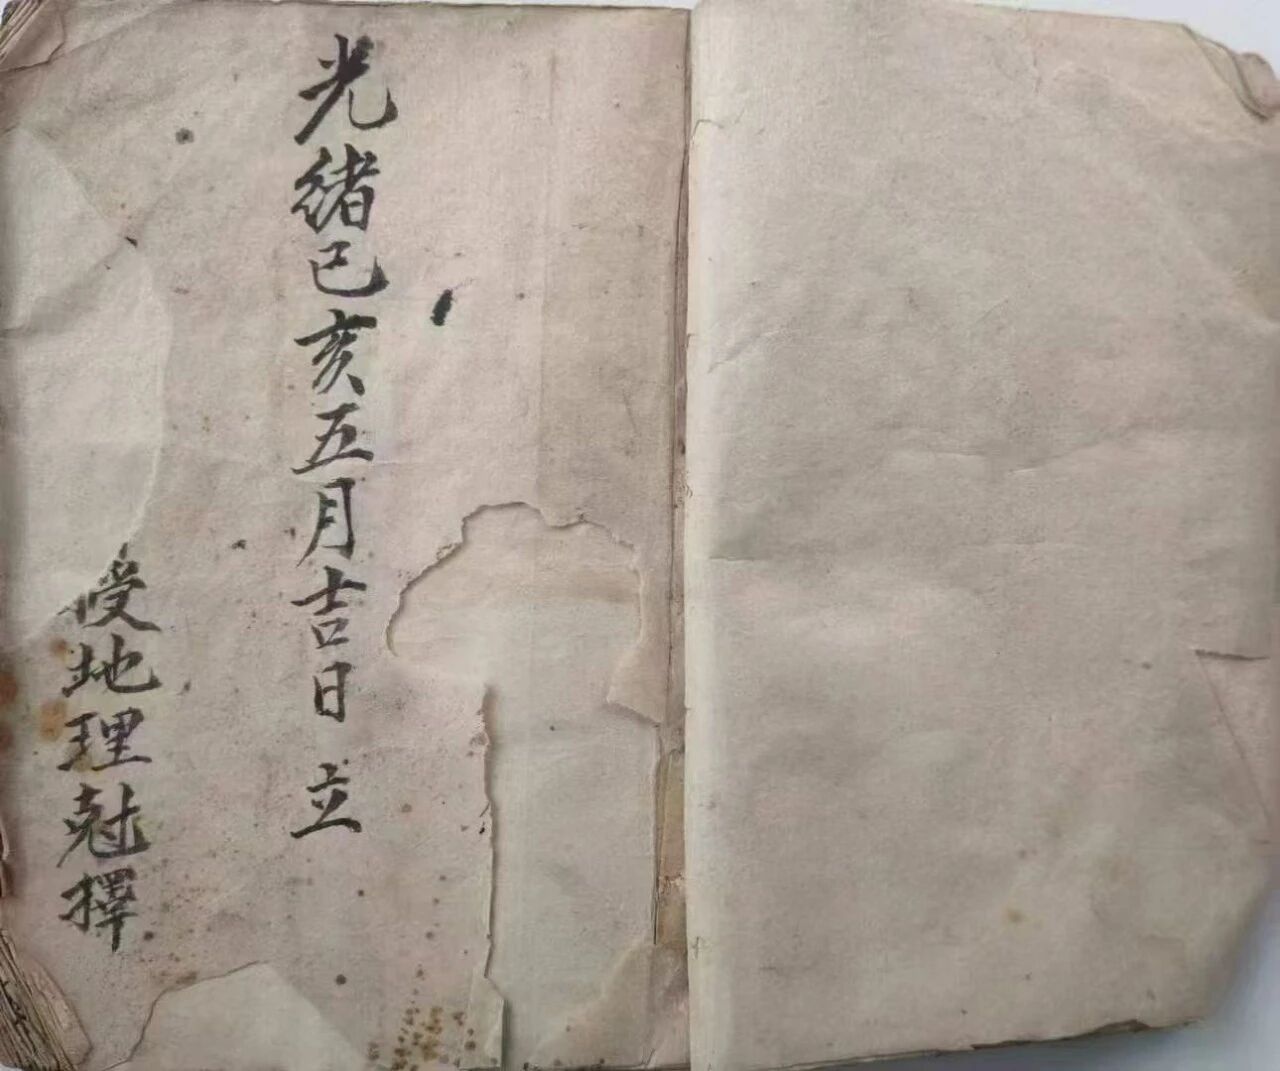 光緒己亥五月吉日 立
授地理尅擇